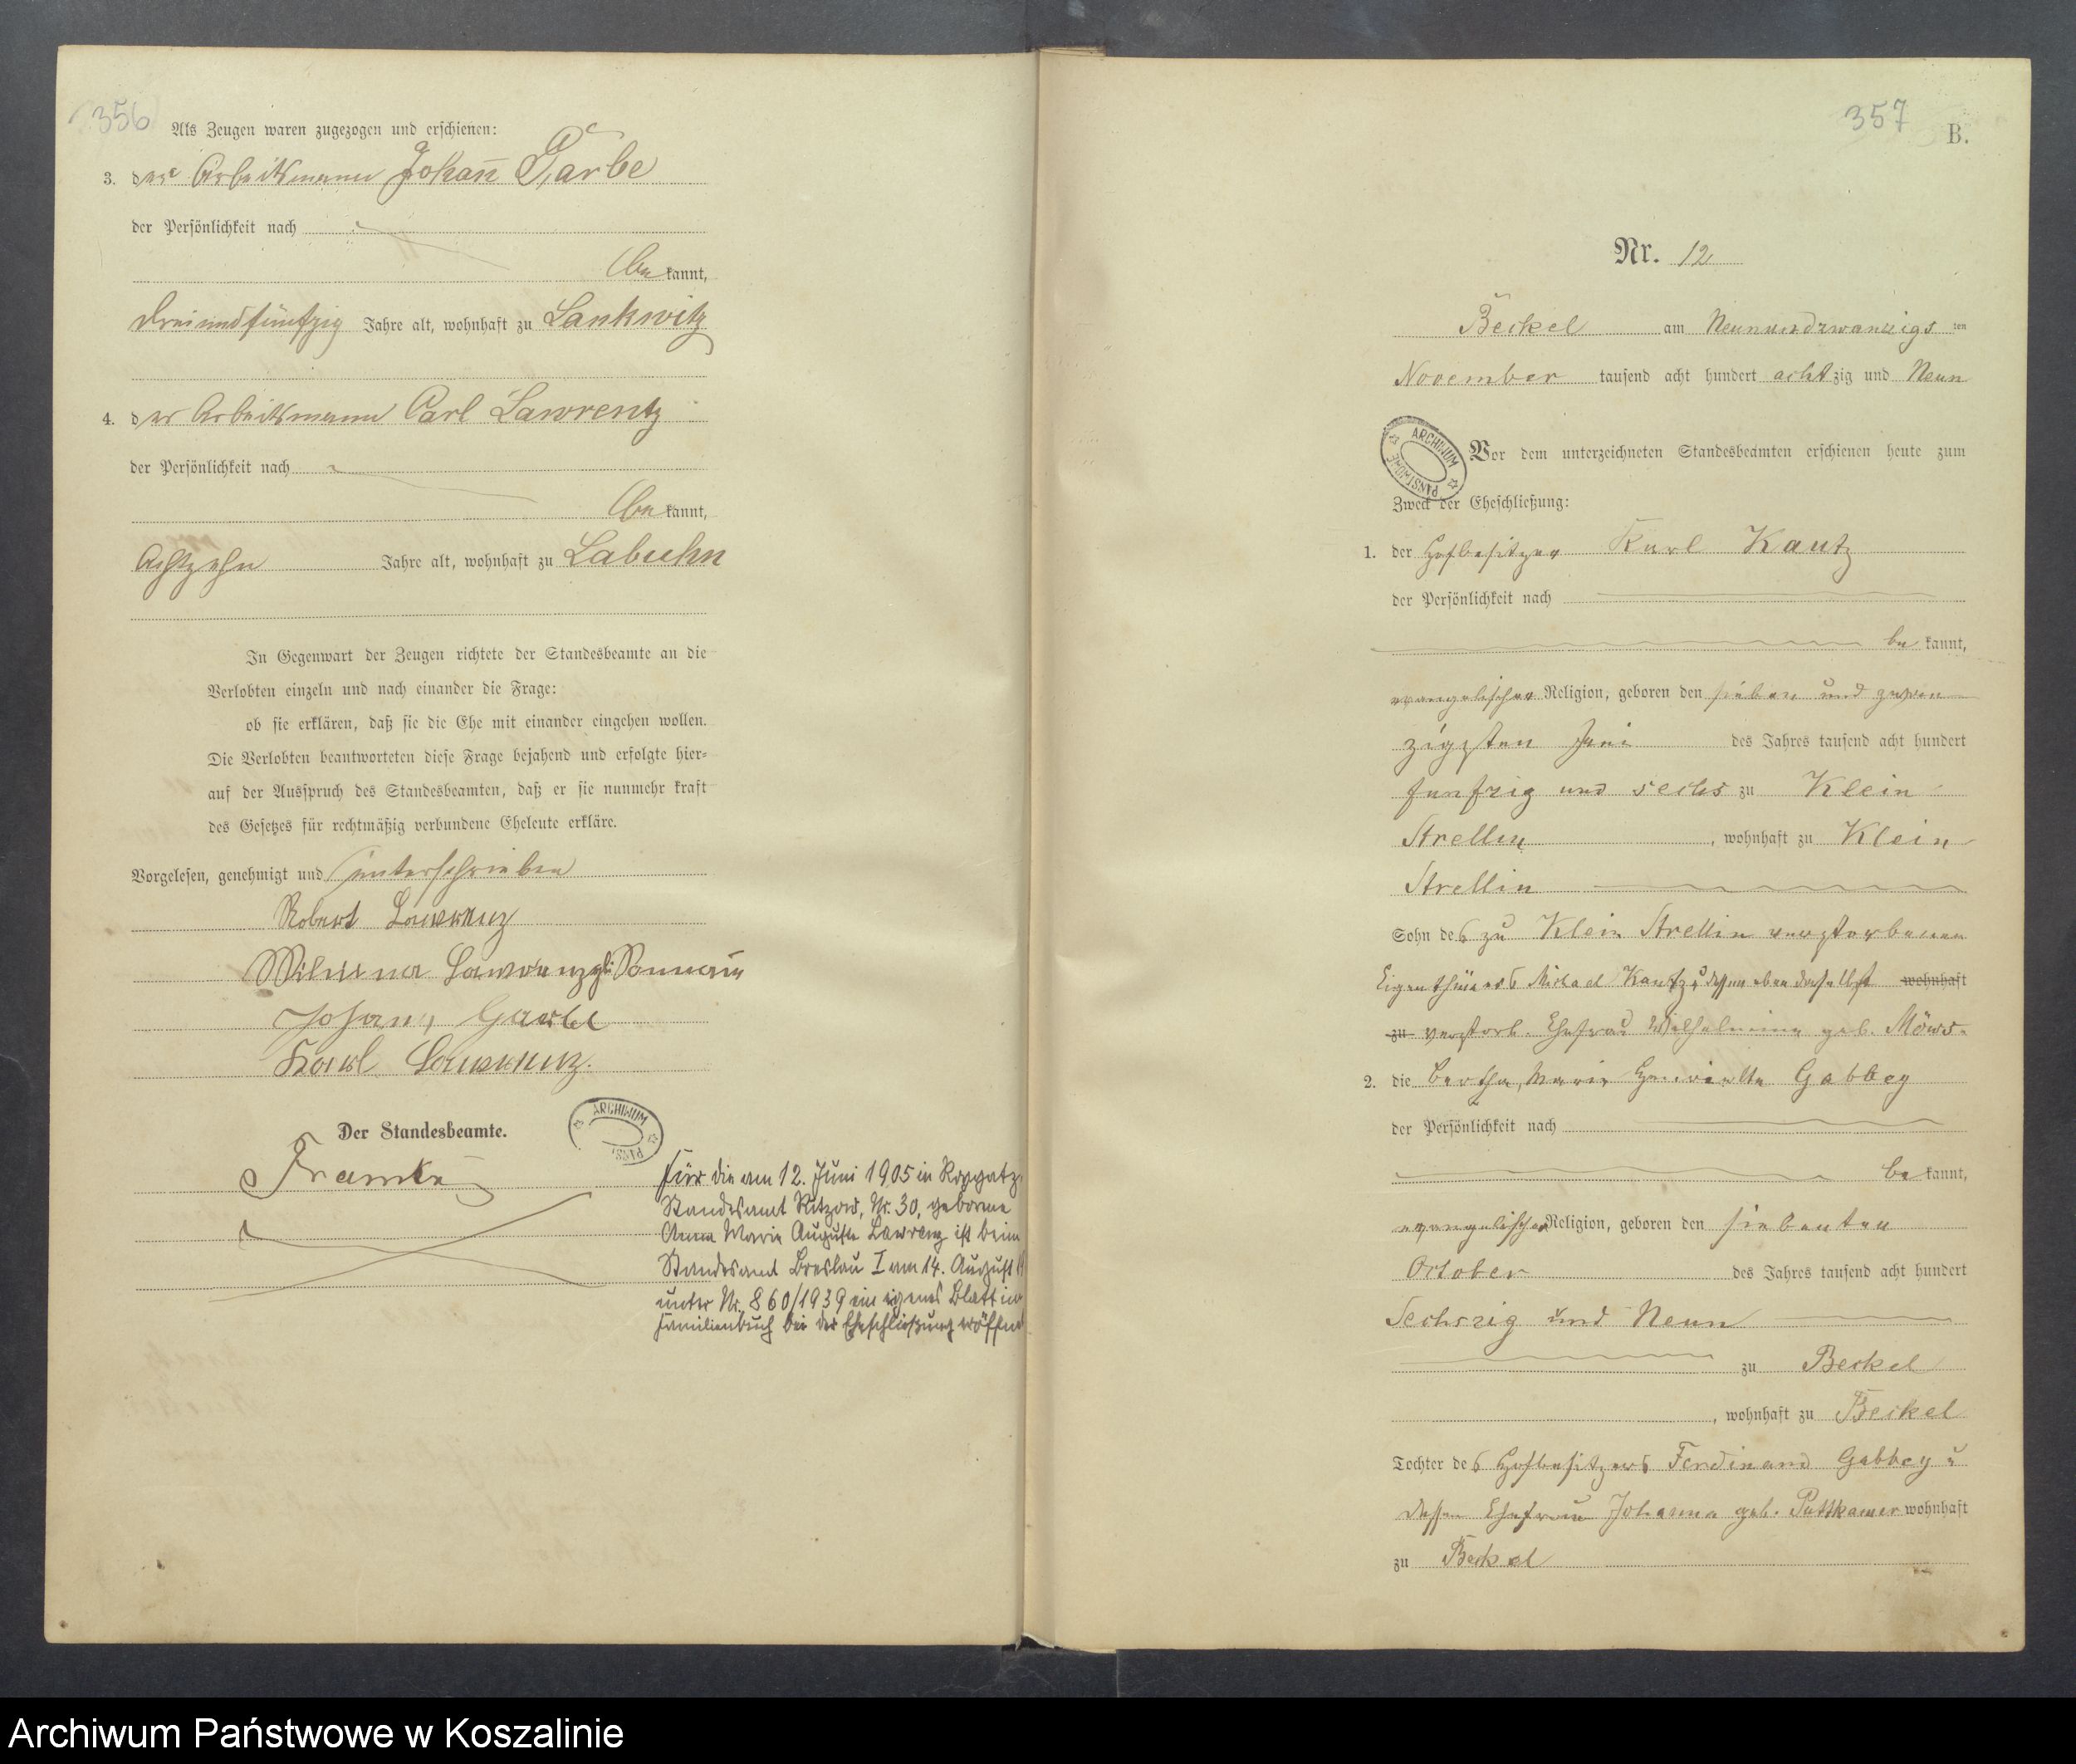 356
Als Zeugen waren zugezogen und erschienen:
3. der Arbeitsmann Johann Garbe
der Persönlichkeit nach
bekannt,
dreiundfünfzig Jahre alt, wohnhaft zu Lankwitz
4. der Arbeitsmann Carl Lawrentz
der Persönlichkeit nach
bekannt,
Achtzehn Jahre alt, wohnhaft zu Labuhn
In Gegenwart der Zeugen richtete der Standesbeamte an die
Verlobten einzeln und nach einander die Frage:
ob sie erklären, daß sie die Ehe mit einander eingehen wollen.
Die Verlobten beantworteten diese Frage bejahend und erfolgte hier-
auf der Ausspruch des Standesbeamten, daß er sie nunmehr kraft
des Gesetzes für rechtmäßig verbundene Eheleute erkläre.
Vorgelesen, genehmigt und unterschrieben
Robert Lawrenz
Lawrenz
Johann Garbe
Karl Lawrenz.
Der Standesbeamte.
ARCHIWUM
Für die am 12. Juni 1905 in
Standesamt Ritzow, Nr. 30, geborene
Anna Marie Auguste Lawrenz ist beim
Standesamt Breslau I am 14. August
unter Nr. 860/1939 ein eigenes Blatt im
Familienbuch bei der Eheschließung eröffnet
357
B.
Nr. 12
Beckel am Neunundzwanzigsten
November tausend acht hundert achtzig und Neun
ARCHIWUM PAŃSTWOWE
Vor dem unterzeichneten Standesbeamten erschienen heute zum
Zweck der Eheschließung:
1. der Hofbesitzer Karl Kautz
der Persönlichkeit nach
bekannt,
evangelischer Religion, geboren den sieben und zwan-
zigsten Juni des Jahres tausend acht hundert
funfzig und sechs zu Klein
Strellin, wohnhaft zu Klein
Strellin
Sohn des zu Klein Strellin verstorbenen
Eigenthümers Michael Kautz u dessen ebendaselbst wohnhaft
zu verstorb. Ehefrau Wilhelmine geb. Möws.
2. die Bertha, Marie Henriette Gabbey
der Persönlichkeit nach
bekannt,
evangelischer Religion, geboren den siebenten
October des Jahres tausend acht hundert
Sechszig und Neun
zu Beckel
, wohnhaft zu Beckel
Tochter des Hofbesitzers Ferdinand Gabbey u
dessen Ehefrau Johanna geb. Puttkamer wohnhaft
zu Beckel
Archiwum Państwowe w Koszalinie